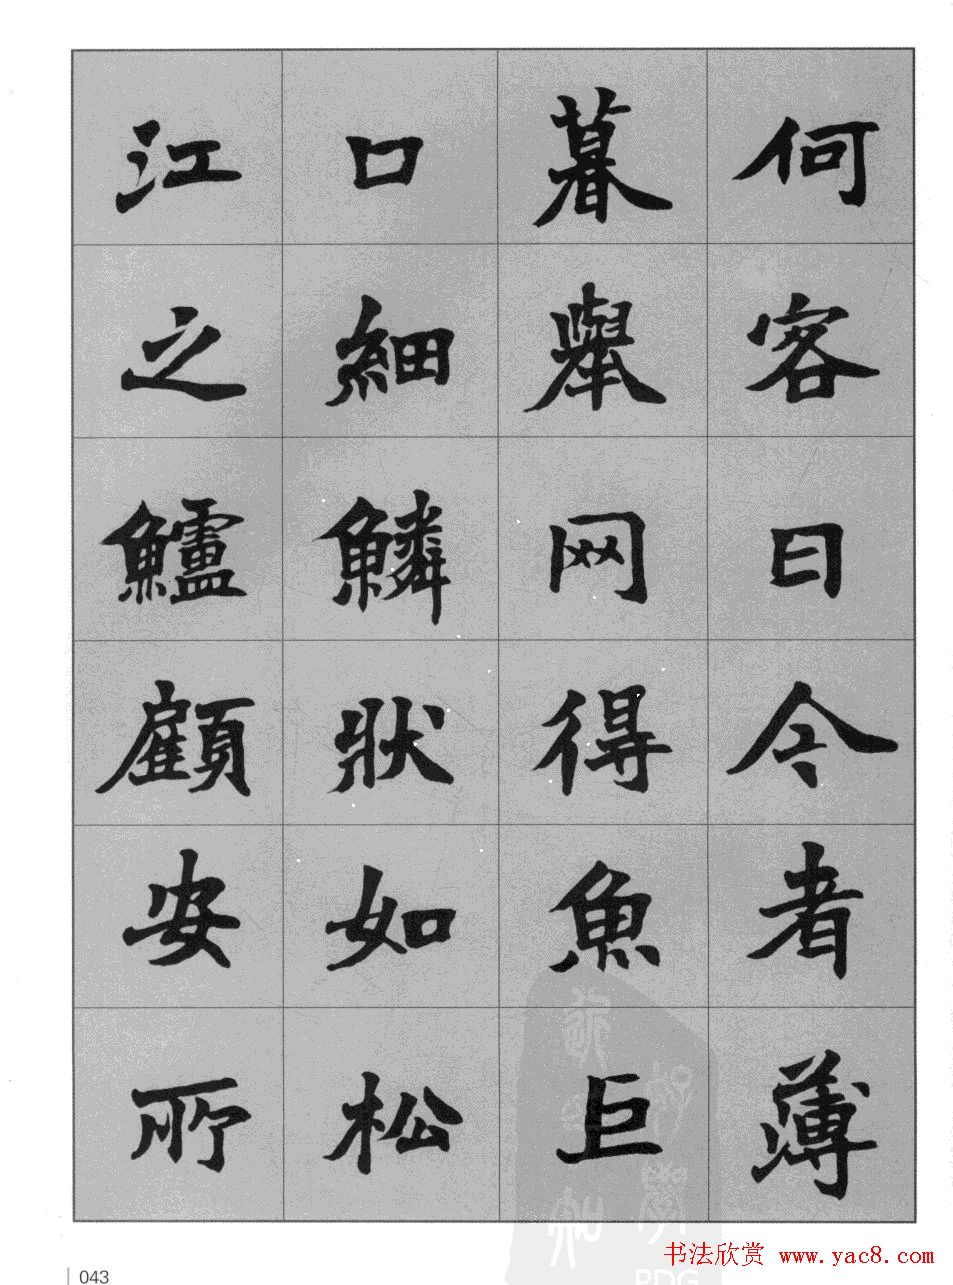 何客曰今者薄
暮舉网得魚巨
口細鱗狀如松
江之鱸顧安所
043
书法欣赏 www.yac8.com
PDG